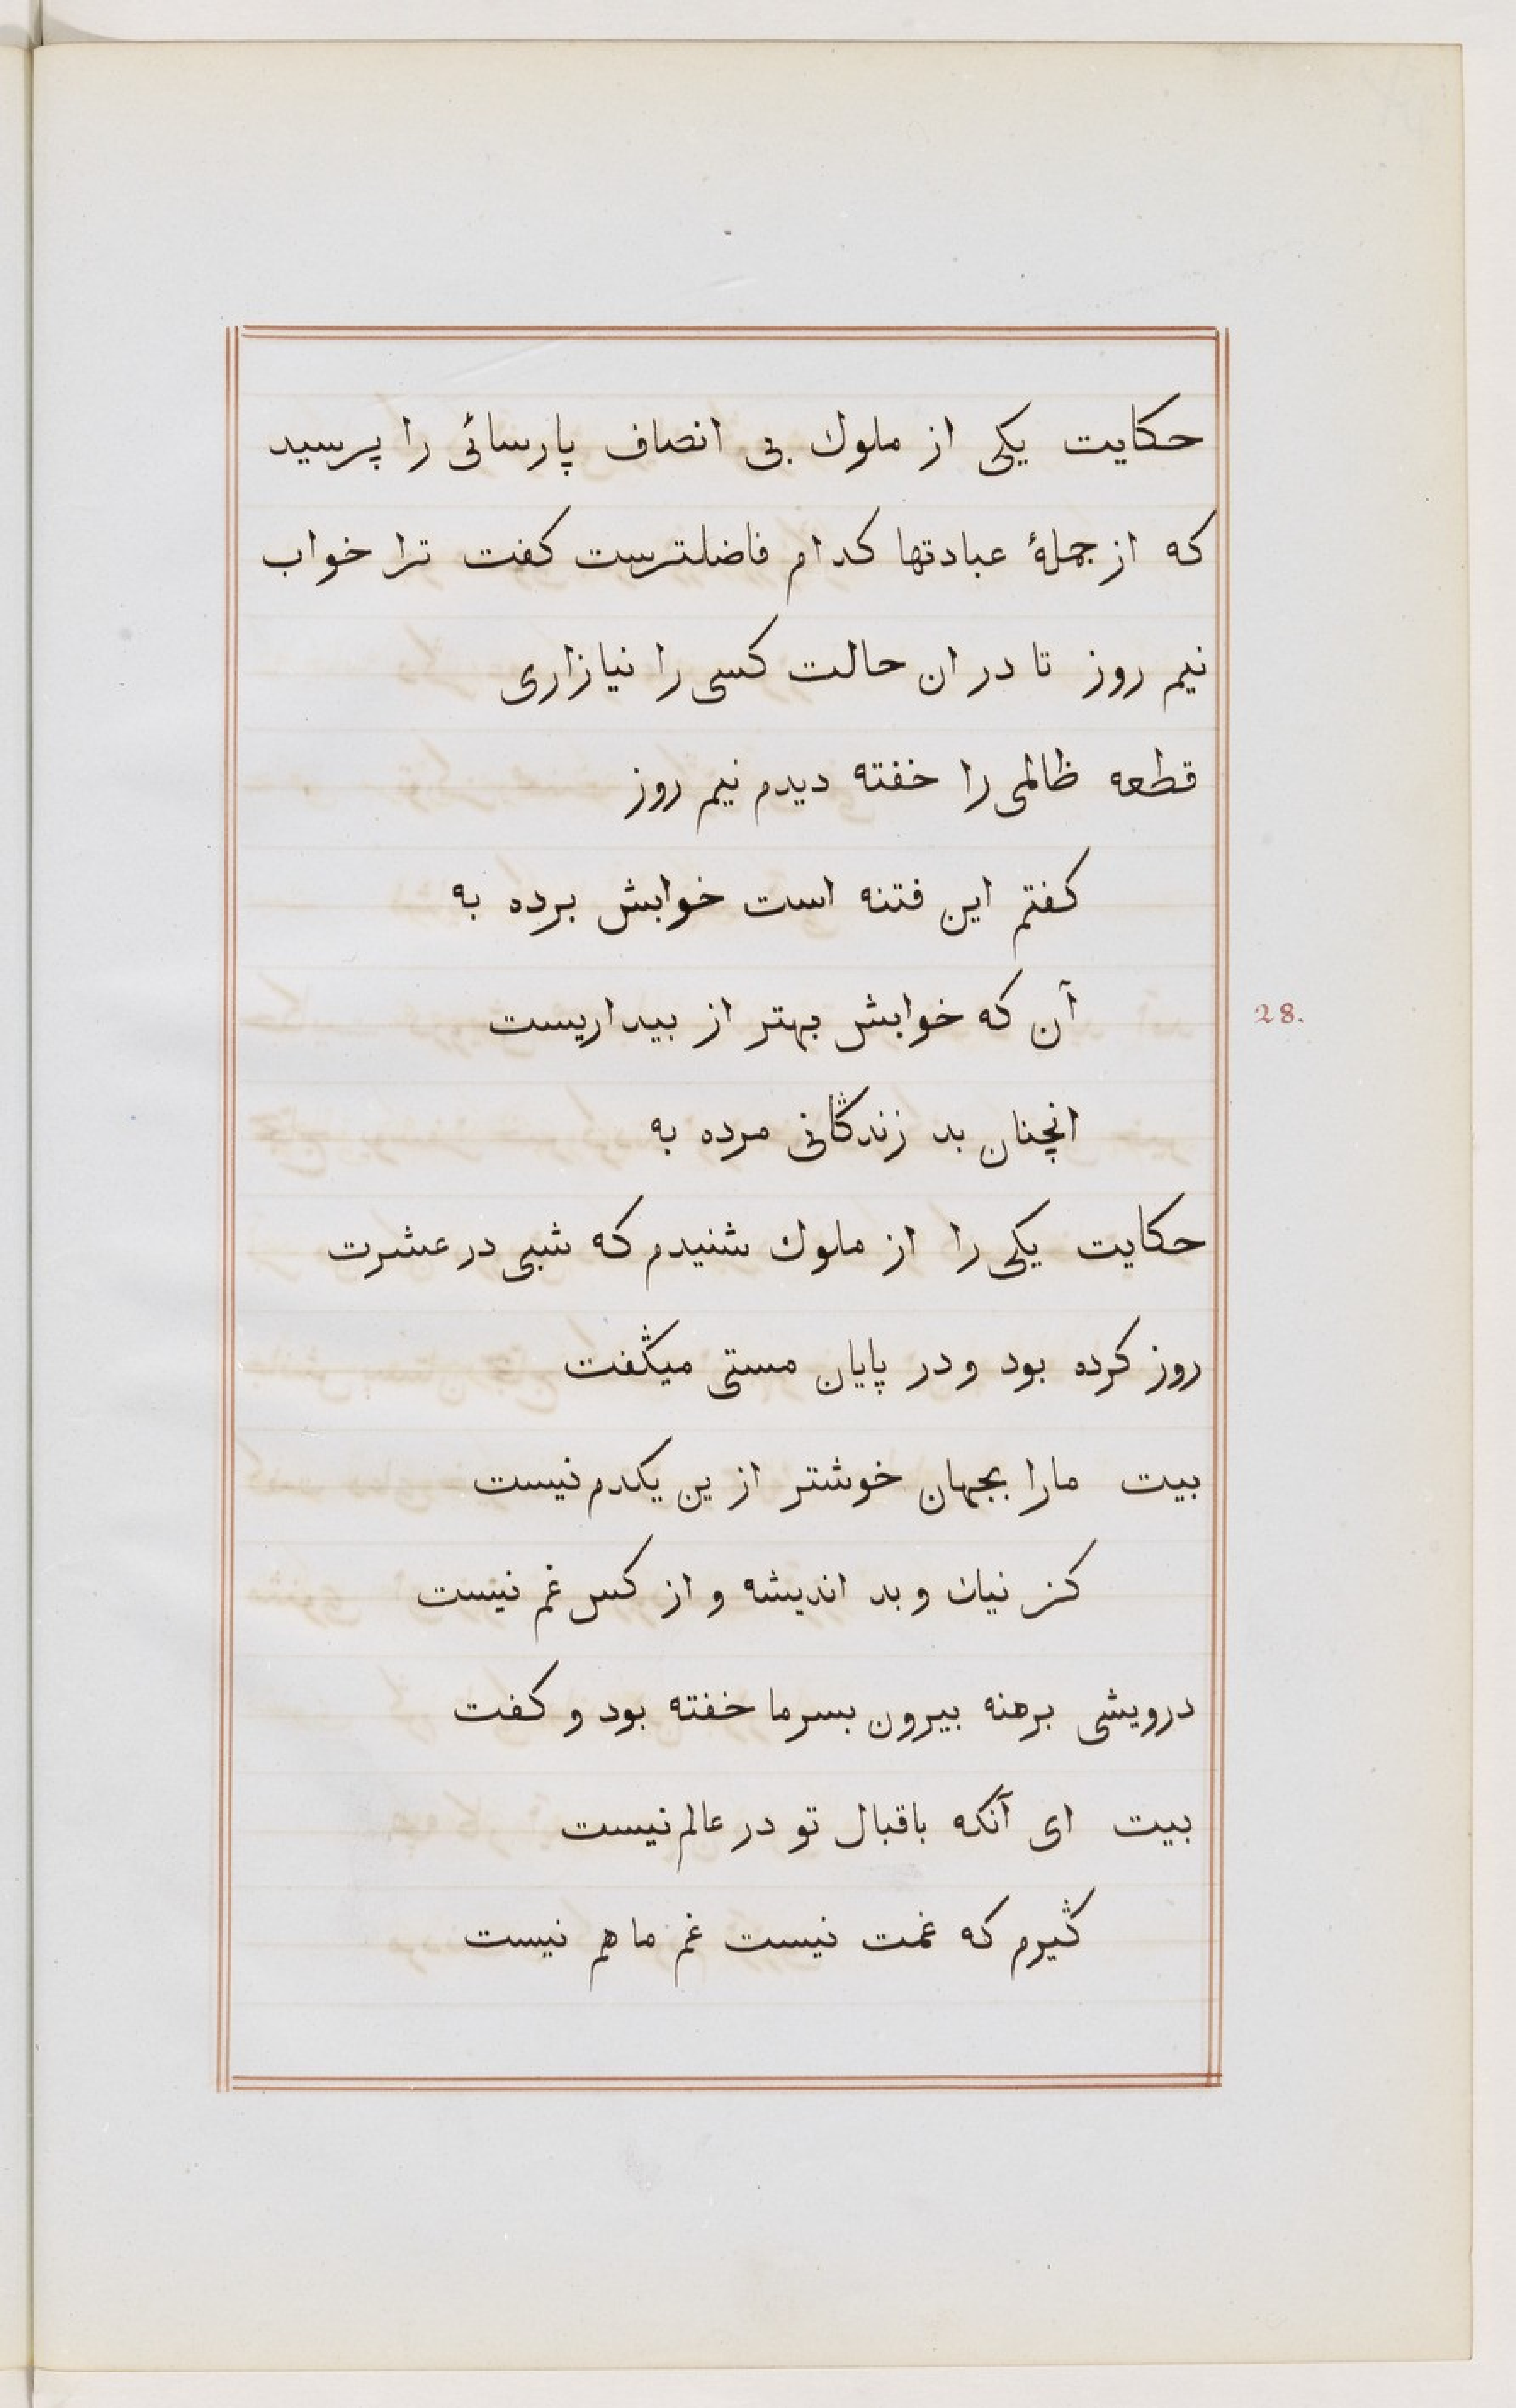 حکایت یکی از ملوك بی انصاف پارسائی را پرسید
که از جملهٔ عبادتها کدام فاضلترست کفت ترا خواب
نیم روز تا در ان حالت کسی را نیازاری
قطعه ظالمی را خفته دیدم نیم روز
کفتم این فتنه است خوابش برده به
آن که خوابش بهتر از بیداریست
28.
انچنان بد زندڭانی مرده به
حکایت یکی را از ملوك شنیدم که شبی در عشرت
روز کرده بود و در پایان مستی میڭفت
بیت مارا بجهان خوشتر از ین یکدم نیست
کز نیك و بد اندیشه و از کس غم نیست
درویشی برهنه بیرون بسرما خفته بود و کفت
بیت ای آنکه باقبال تو در عالم نیست
ڭیرم که غمت نیست غم ما هم نیست